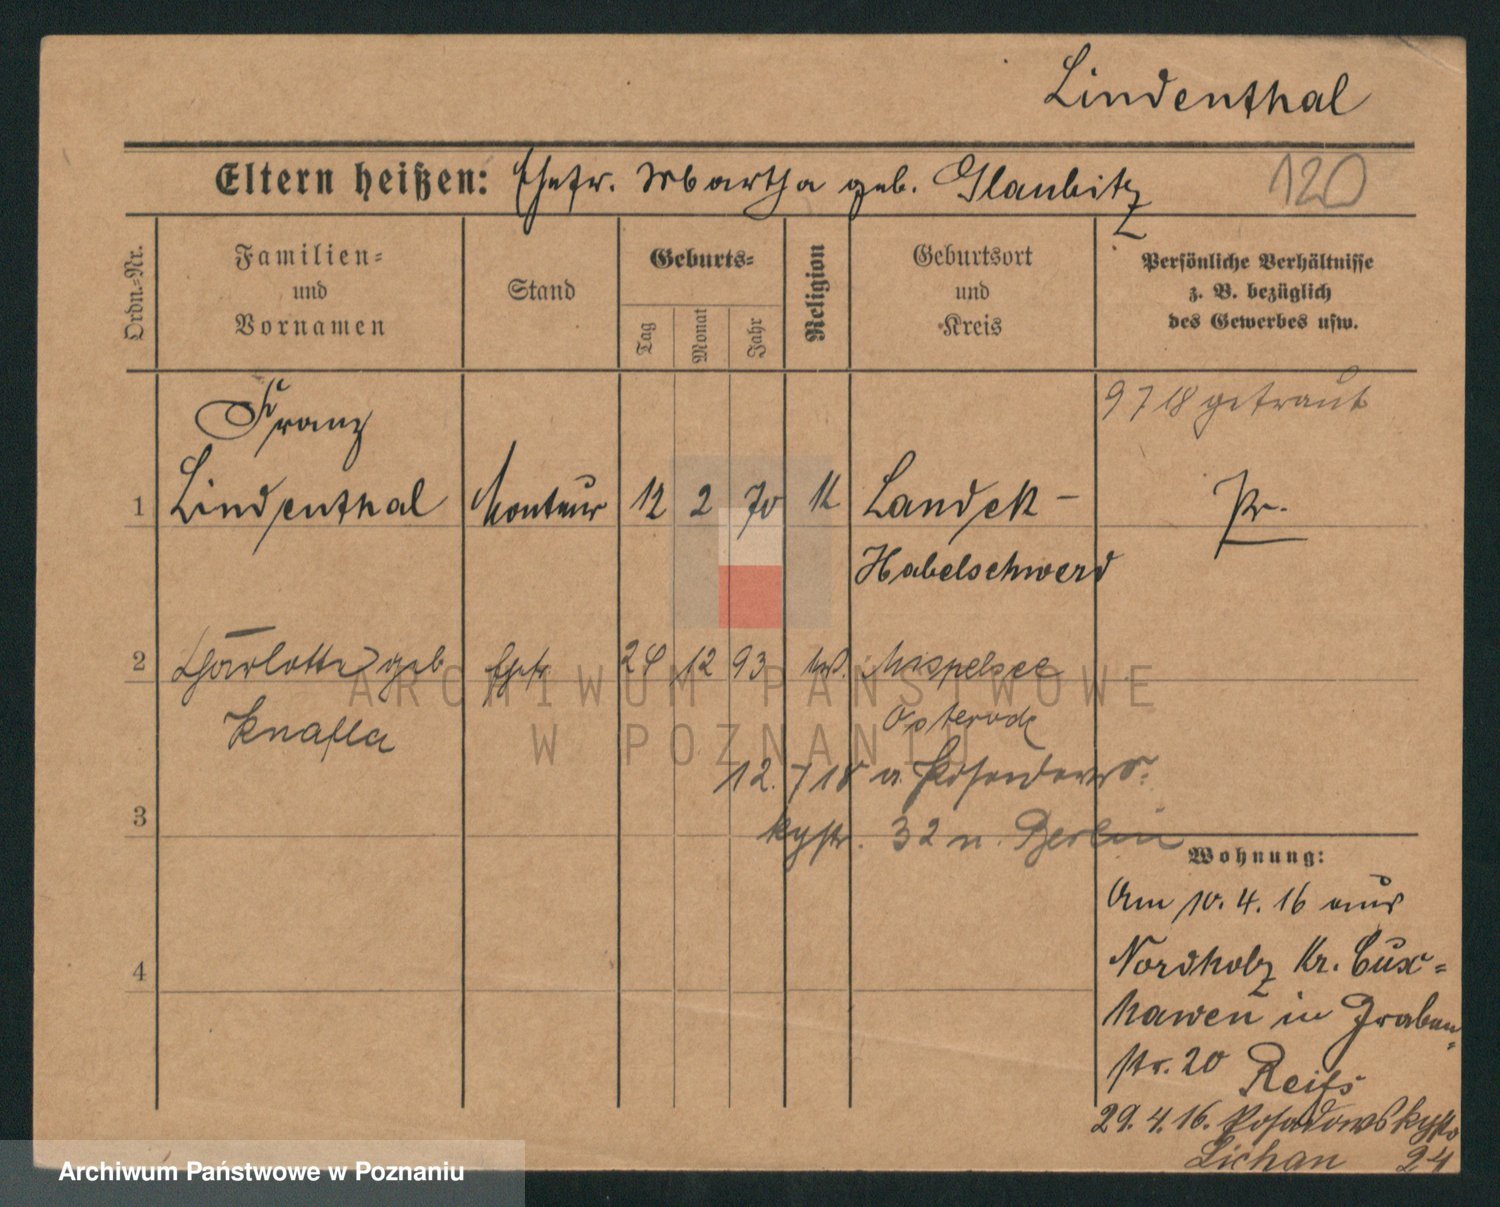 Lindenthal
Eltern heißen: Ehefr. Martha geb. Glaubitz 120
Ordn.-Nr.
Familien-
und
Vornamen
Stand
Geburts-
Tag
Monat
Jahr
Religion
Geburtsort
und
Kreis
Persönliche Verhältnisse
z. B. bezüglich
des Gewerbes usw.
9 7 18 getraut
Franz
1 Lindenthal Monteur 12 2 70 K Landek - Pr.
Habelschwerd
2 Charlotte geb Ehefr. 24 12 93 Mispelsee
Knaffla Osterode
12. 7 18 a. Posadows-
3 kystr. 32 n. Berlin
Wohnung:
Am 10. 4. 16 aus
Nordholz Kr. Cux-
4
hawen in Graben-
str. 20 Reifs
29. 4. 16. Posadowskystr
Lichan 24
ARCHIWUM PAŃSTWOWE
W POZNANIU
Archiwum Państwowe w Poznaniu